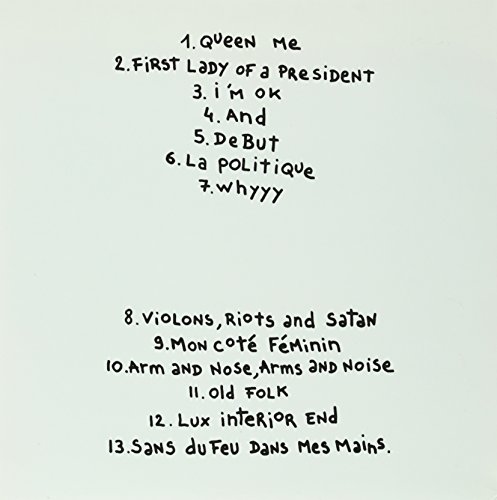 1. Queen Me
2. First Lady of a President
3. i'm ok
4. And
5. DeBut
6. La Politique
7. Whyyy
8. Violons, Riots and Satan
9. Mon coté Féminin
10. Arm and Nose, Arms and Noise
11. Old Folk
12. Lux interior End
13. Sans du Feu Dans Mes Mains.